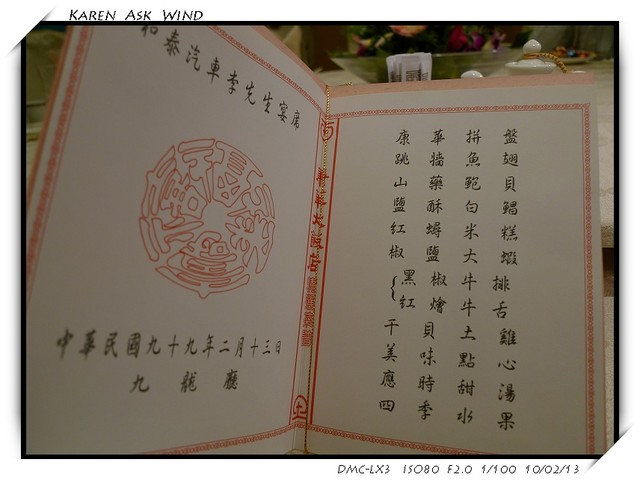 KAREN ASK WIND
和泰汽車李先生宴席
中華民國九十九年二月十三日
九龍廳
康華拼盤
跳牆魚翅
山藥鮑貝
鹽酥白鯧
紅蟳米糕
椒鹽大蝦
黑椒牛排
紅燴牛舌
干貝土雞
美味點心
應時甜湯
四季水果
DMC-LX3 ISO80 F2.0 1/100 10/02/13